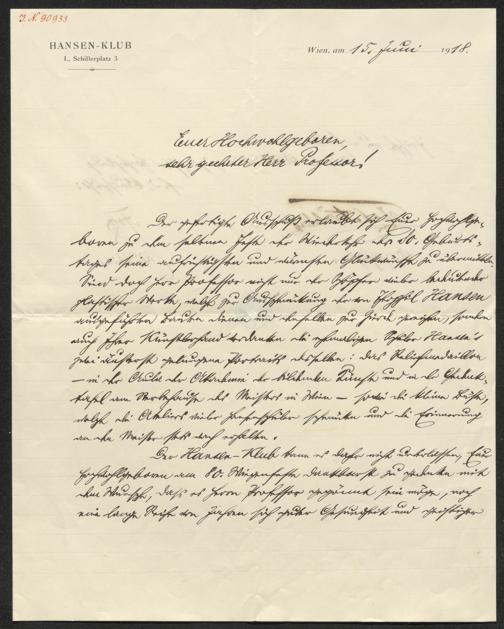 J. N. 90933
HANSEN-KLUB
I., Schillerplatz 3
Wien, am 15. Juni 1918.
Euer Hochwohlgeboren,
sehr geehrter Herr Professor!
Der gefertigte Ausschuß erlaubt sich Euer Hochwohlge-
boren zu dem seltenen Feste der Wiederkehr des 80. Geburts-
tages seine aufrichtigsten und wärmsten Glückwünsche zu übermitteln.
Sind doch Herr Professor nicht nur der Schöpfer vieler bedeutender
plastischer Werke, welche zur Ausschmückung der von Theophil Hansen
ausgeführten Bauten dienen und denselben zur Zierde gereichen, sondern
auch Ihrer Künstlerhand verdanken die ehemaligen Schüler Hansen's
zwei äusserst gelungene Porträts desselben: das Reliefmedaillon
– in der Aula der Akademie der bildenden Künste und in der Gedenk-
tafel am Sterbehause des Meisters in Wien – sowie die kleine Büste,
welche die Ateliers vieler Hansenschüler schmücken und die Erinnerung
an den Meister stets wach erhalten.
Der Hansen-Klub kann es daher nicht unterlassen, Euer
Hochwohlgeboren am 80. Wiegenfeste dankbarst zu gedenken mit
dem Wunsche, dass es Herrn Professor gegönnt sein möge, noch
eine lange Reihe von Jahren sich guter Gesundheit und geistiger